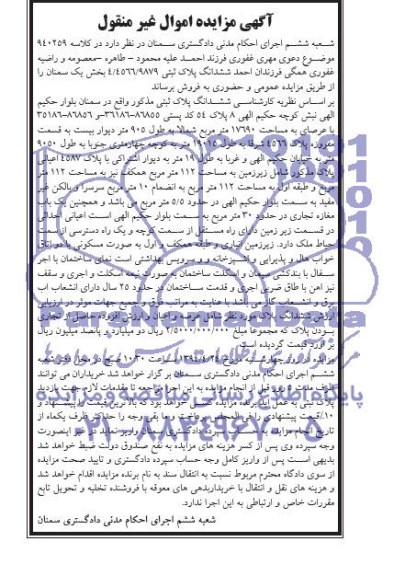 آگهی مزایده اموال غیر منقول
شعبه ششم اجرای احکام مدنی دادگستری سمنان در نظر دارد در کلاسه ۹۴۰۲۵۹
موضوع دعوی مهری غفوری فرزند احمد علیه محمود - طاهره -معصومه و راضیه
غفوری همگی فرزندان احمد ششدانگ پلاک ثبتی ۴/۴۵۶۶/۹۸۷۹ بخش یک سمنان را
از طریق مزایده عمومی و حضوری به فروش برساند
بر اساس نظریه کارشناسی ششدانگ پلاک ثبتی مذکور واقع در سمنان بلوار حکیم
الهی نبش کوچه حکیم الهی ۸ پلاک ۵۴ کد پستی ۸۶۸۵۵-۳۶۱۸۶ و ۸۶۸۵۶-۳۵۱۸۶
با عرصه‌ای به مساحت ۱۷۶۹۰ متر مربع شمالا به طول ۹۰۵ متر دیوار بیست به قسمت
مفروزه پلاک ۴۵۶۶ شرقا به طول ۱۹۰۱۵ متر به کوچه چهارمتری جنوبا به طول ۹۰۵۰
متر به خیابان حکیم الهی و غربا به طول ۱۹ متر به دیوار اشتراکی با پلاک ۴۵۸۷ اعیانی
پلاک مذکور شامل زیرزمین به مساحت ۱۱۲ متر مربع همکف نیز به مساحت ۱۱۲ متر
مربع و طبقه اول به مساحت ۱۱۲ متر مربع به انضمام ۱۰ متر مربع سرسرا و بالکن غیر
مفید به سمت بلوار حکیم الهی در حدود ۵/۵ متر مربع می باشد و همچنین یک باب
مغازه تجاری در حدود ۳۰ متر مربع به سمت بلوار حکیم الهی است اعیانی احداثی
در قسمت زیر زمین دارای راه مستقل از سمت کوچه و یک راه دسترسی از سمت
حیاط ملک دارد. زیرزمین انباری و طبقه همکف و اول به صورت مسکونی با دو اتاق
خواب هال و پذیرایی و آشپزخانه و سرویس بهداشتی است نمای ساختمان با آجر
سفال با بندکشی سیمان و اسکلت ساختمان به صورت نیمه اسکلت و اجری و سقف
نیز اهن با طاق ضربی اجری و قدمت ساختمان در حدود ۲۵ سال دارای انشعاب آب
برق و انشعاب گاز می باشد با عنایت به مراتب فوق و جمیع جهات موثر در ارزیابی
ارزش ششدانگ پلاک مورد نظر شامل عرصه و اعیان و ارزش افزوده حاصل از تجاری
بودن پلاک که مجموعا مبلغ ۲/۵۰۰/۰۰۰/۰۰۰ ریال دو میلیارد و پانصد میلیون ریال
بر اورد قیمت گردیده است
مزایده در روز چهارشنبه مورخ ۱۳۹۴/۶/۲۴ ساعت ۱۰:۳۰ صبح در محل دفتر شعبه
ششم اجرای احکام مدنی دادگستری سمنان برگزار خواهد شد خریداران می توانند
ظرف مدت ۵ روز قبل از انجام مزایده به این اجرا مراجعه تا مقدمات لازم جهت بازدید
پلاک ثبتی به عمل اید برنده مزایده کسی خواهد بود که بالاترین قیمت را پیشنهاد و
۱۰٪ قیمت پیشنهادی را فی المجلس پرداخت و ما بقی وجه را حداکثر ظرف یکماه از
تاریخ انجام مزایده به حساب سپرده دادگستری سمنان واریز نماید در غیر اینصورت
وجه سپرده وی پس از کسر هزینه های مزایده به نفع صندوق دولت ضبط خواهد شد
بدیهی است پس از واریز کامل وجه حساب سپرده دادگستری و تایید صحت مزایده
از سوی دادگاه محترم مربوط نسبت به انتقال سند به نام برنده مزایده اقدام خواهد شد
و هزینه های نقل و انتقال با خریدار بدهی های معوقه با فروشنده تخلیه و تحویل تابع
مقررات خاص و ارتباطی به این اجرا ندارد.
شعبه ششم اجرای احکام مدنی دادگستری سمنان